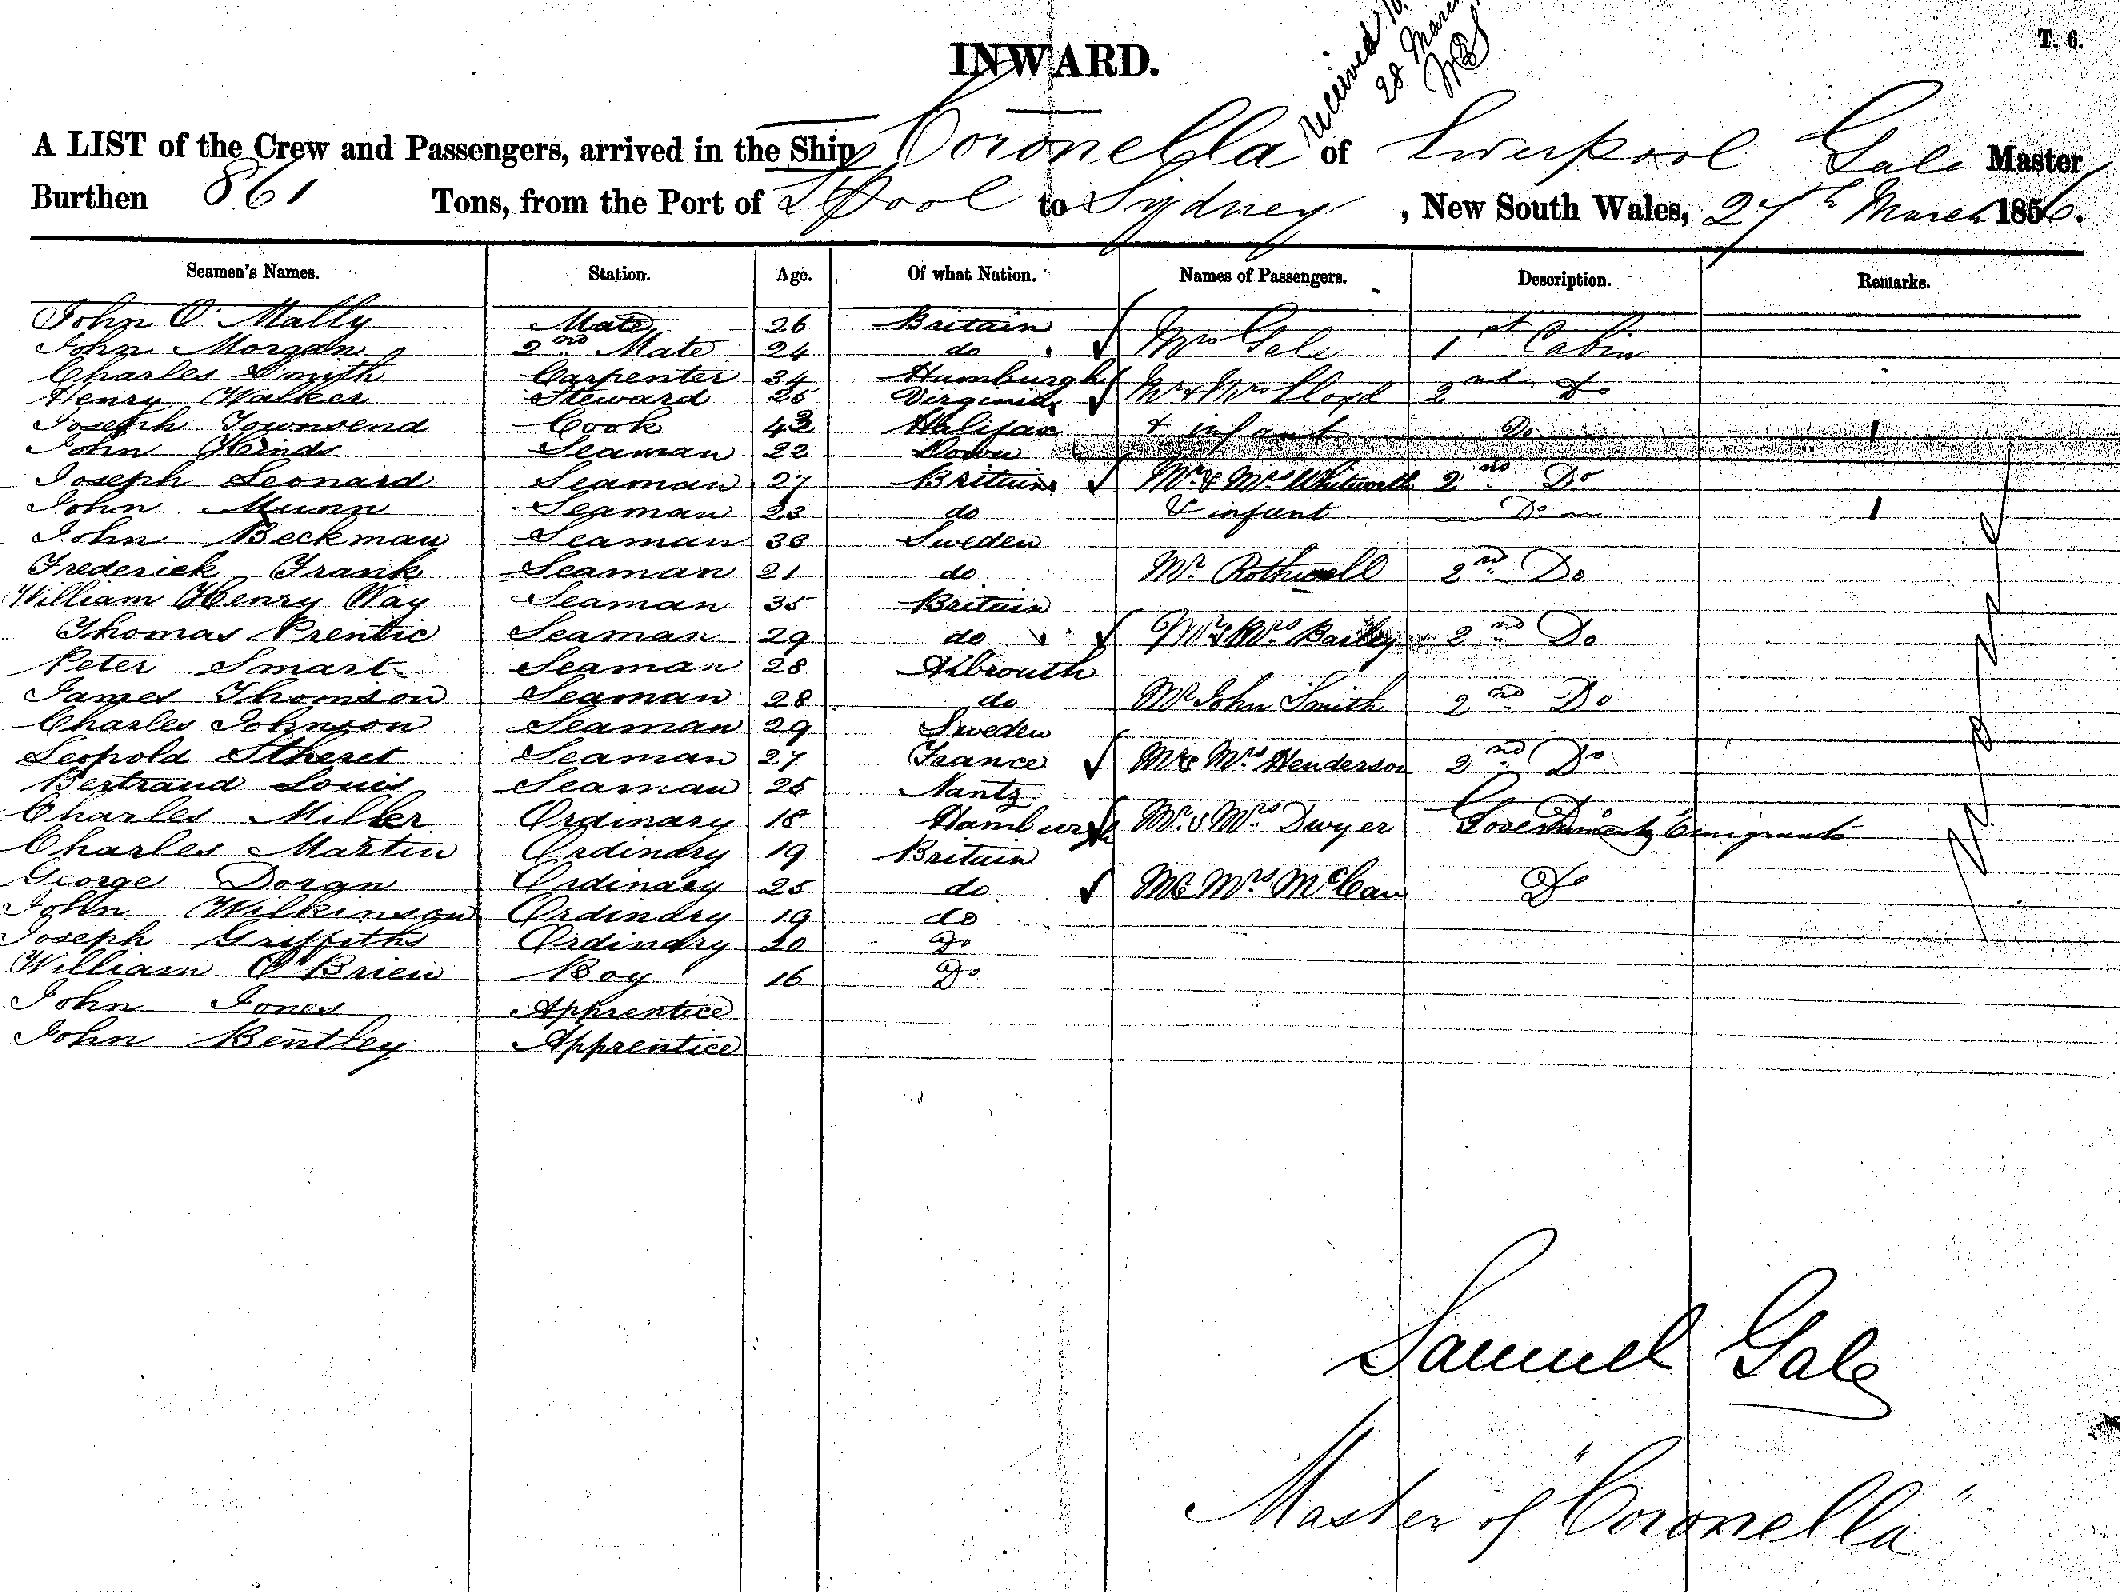 INWARD.
T. 6.
Received
28 March
A LIST of the Crew and Passengers, arrived in the Ship Coronella of Liverpool Gale Master
Burthen 861 Tons, from the Port of L'pool to Sydney, New South Wales, 27th March 1856.
Seamen's Names. Station. Age. Of what Nation. Names of Passengers. Description. Remarks.
John O'Mally Mate 26 Britain
John Morgan 2nd Mate 24 do Mrs Gale 1st Cabin
Charles Smith Carpenter 34 Humburgh
Henry Walker Steward 25 Virginia Mr & Mrs Lloyd 2nd Do
Joseph Townsend Cook 43 Halifax & infant Do 1
John Hinds Seaman 22 Down
Joseph Leonard Seaman 27 Britain Mr & Mrs Whitworth 2nd Do
John Munn Seaman 23 do & infant Do 1
John Beckman Seaman 30 Sweden
Frederick Frank Seaman 21 do Mr Rothwell 2nd Do
William Henry Way Seaman 35 Britain
Thomas Prentic Seaman 29 do Mr & Mrs Bailey 2nd Do
Peter Smart Seaman 28 Albrouth
James Thomson Seaman 28 do Mr John Smith 2nd Do
Charles Johnson Seaman 29 Sweden
Leopold Stheret Seaman 27 France Mr & Mrs Henderson 2nd Do
Bertraud Louis Seaman 25 Nantz
Charles Miller Ordinary 18 Hamburgh Mr & Mrs Dwyer Government Emigrants
Charles Martin Ordinary 19 Britain
George Doran Ordinary 25 do Mr & Mrs McCan Do
John Wilkinson Ordinary 19 do
Joseph Griffiths Ordinary 20 Do
William O'Brien Boy 16 Do
John Jones Apprentice
John Bentley Apprentice
Samuel Gale
Master of "Coronella"